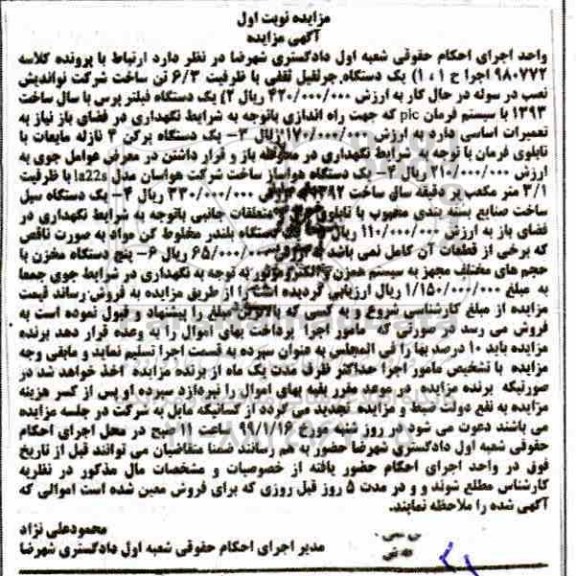 مزایده نوبت اول
آگهی مزایده
واحد اجرای احکام حقوقی شعبه اول دادگستری شهرضا در نظر دارد ارتباط با پرونده کلاسه
۹۸۰۷۷۲ اجرا ح ۱ ، ۱) یک دستگاه جرثقیل ثقفی با ظرفیت ۶/۳ تن ساخت شرکت نواندیش
نصب در سوله در حال کار به ارزش ۴۲۰/۰۰۰/۰۰۰ ریال ۲) یک دستگاه فیلتر پرس با سال ساخت
۱۳۹۳ با سیستم فرمان plc که جهت راه اندازی باتوجه به شرایط نگهداری در فضای باز نیاز به
تعمیرات اساسی دارد به ارزش ۱۷۰/۰۰۰/۰۰۰ ریال ۳- یک دستگاه پرکن ۴ نازله مایعات با
تابلوی فرمان با توجه به شرایط نگهداری در محوطه باز و قرار داشتن در معرض عوامل جوی به
ارزش ۲۱۰/۰۰۰/۰۰۰ ریال ۴- یک دستگاه هواساز ساخت شرکت هواسان مدل la22s با ظرفیت
۳/۱ متر مکعب بر دقیقه سال ساخت ۱۳۹۲ به ارزش ۳۳۰/۰۰۰/۰۰۰ ریال ۴- یک دستگاه سیل
ساخت صنایع بسته بندی محبوب با تابلوی متعلقات جانبی باتوجه به شرایط نگهداری در
فضای باز به ارزش ۱۱۰/۰۰۰/۰۰۰ ریال دستگاه بلندر مخلوط کن مواد به صورت ناقص
که برخی از قطعات آن کامل نمی باشد به ارزش ۶۵/۰۰۰/۰۰۰ ریال ۶- پنج دستگاه مخزن با
حجم های مختلف مجهز به سیستم همزن و الکتروموتور به توجه به نگهداری در شرایط جوی جمعا
به مبلغ ۱/۱۵۰/۰۰۰/۰۰۰ ریال ارزیابی گردیده است را از طریق مزایده به فروش رساند قیمت
مزایده از مبلغ کارشناسی شروع و به کسی که بالاترین مبلغ را پیشنهاد و قبول نموده است به
فروش می رسد در صورتی که مامور اجرا پرداخت بهای اموال را به وعده قرار دهد برنده
مزایده باید ۱۰ درصد بها را فی المجلس به عنوان سپرده به قسمت اجرا تسلیم نماید و مابقی وجه
مزایده با تشخیص مامور اجرا حداکثر ظرف مدت یک ماه از برنده مزایده اخذ خواهد شد در
صورتیکه برنده مزایده در موعد مقرر بقیه بهای اموال را نپردازد سپرده او پس از کسر هزینه
مزایده به نفع دولت ضبط و مزایده تجدید می گردد از کسانیکه مایل به شرکت در جلسه مزایده
می باشند دعوت می شود در روز شنبه مورخ ۹۹/۱/۱۶ ساعت ۱۱ صبح در محل اجرای احکام
حقوقی شعبه اول دادگستری شهرضا حضور به هم رسانند ضمنا متقاضیان می توانند قبل از تاریخ
فوق در واحد اجرای احکام حضور یافته از خصوصیات و مشخصات مال مذکور در نظریه
کارشناس مطلع شوند و و در مدت ۵ روز قبل روزی که برای فروش معین شده است اموالی که
آگهی شده را ملاحظه نمایند.
محمودعلی نژاد
مدیر اجرای احکام حقوقی شعبه اول دادگستری شهرضا